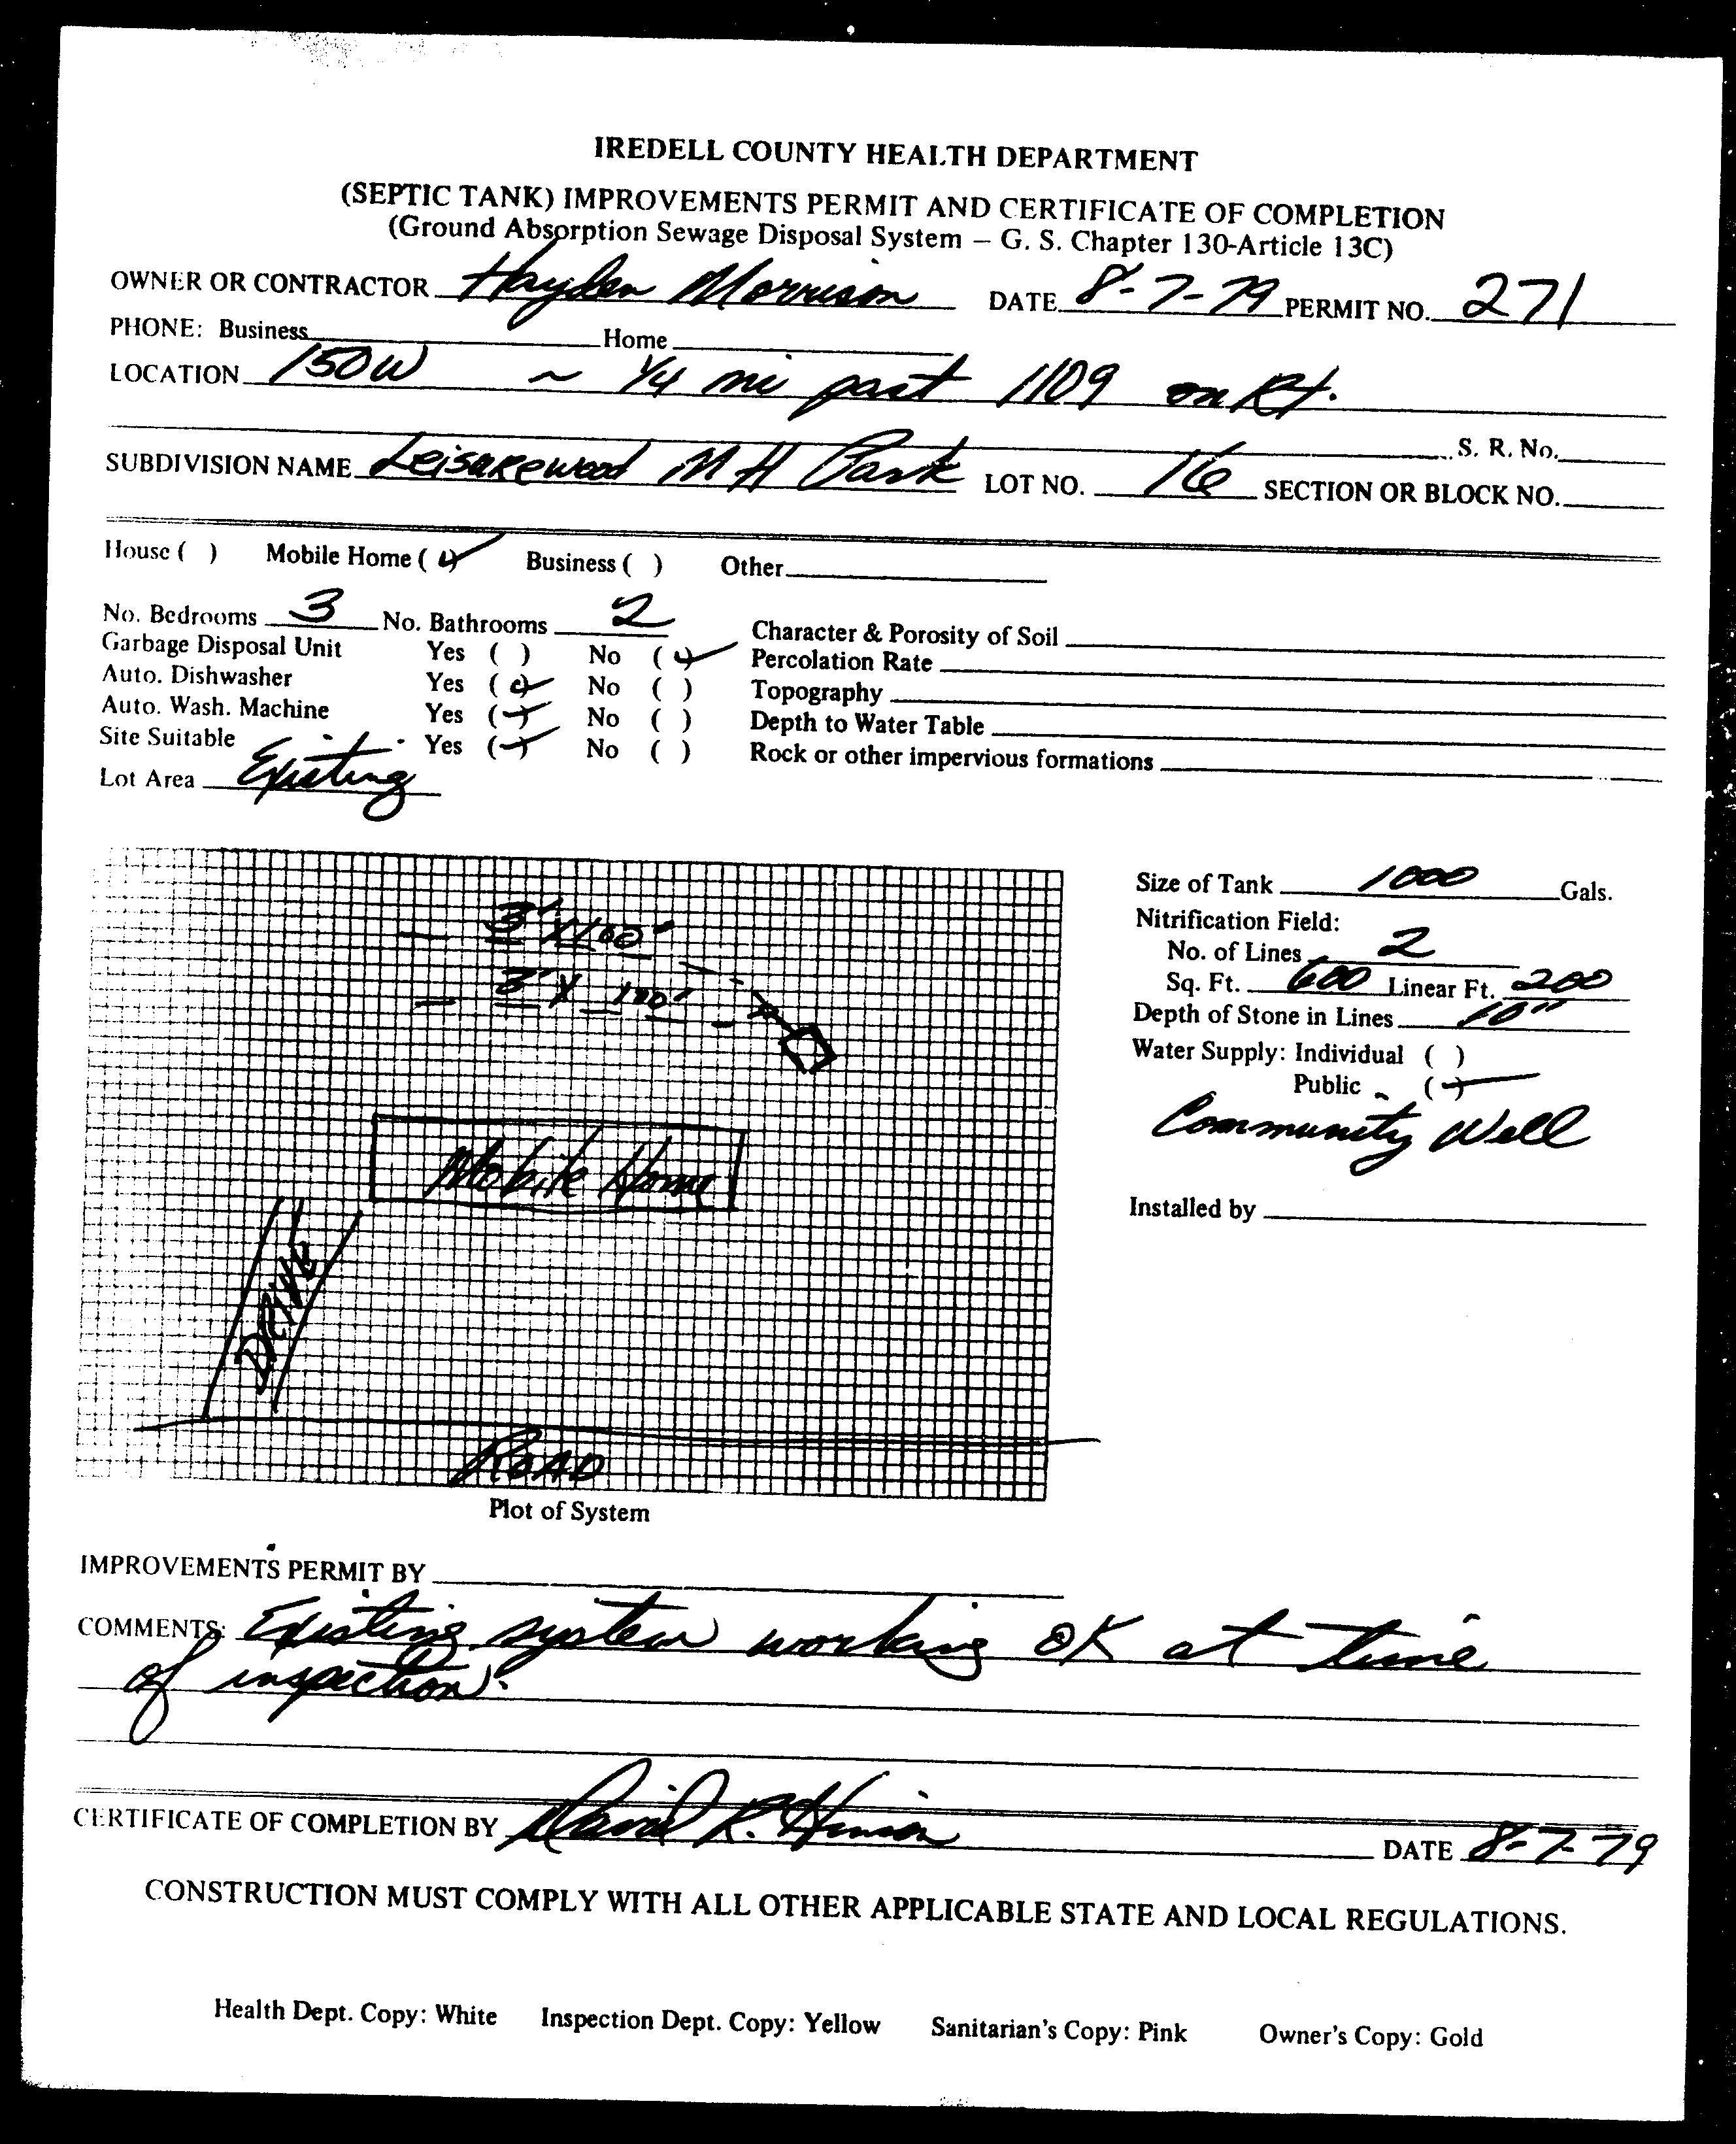 IREDELL COUNTY HEALTH DEPARTMENT
(SEPTIC TANK) IMPROVEMENTS PERMIT AND CERTIFICATE OF COMPLETION
(Ground Absorption Sewage Disposal System – G. S. Chapter 130-Article 13C)
OWNER OR CONTRACTOR Hayden Morrison DATE 8-7-79 PERMIT NO. 271
PHONE: Business Home
LOCATION 150W ~ 1/4 mi past 1109 on Rt.
S. R. No.
SUBDIVISION NAME Leisurewood M H Park LOT NO. 16 SECTION OR BLOCK NO.
House ( ) Mobile Home ( ✓ ) Business ( ) Other
No. Bedrooms 3 No. Bathrooms 2 Character & Porosity of Soil
Garbage Disposal Unit Yes ( ) No ( ✓ ) Percolation Rate
Auto. Dishwasher Yes ( ✓ ) No ( ) Topography
Auto. Wash. Machine Yes ( ✓ ) No ( ) Depth to Water Table
Site Suitable Yes ( ✓ ) No ( ) Rock or other impervious formations
Lot Area Existing
Size of Tank 1000 Gals.
Nitrification Field:
No. of Lines 2
Sq. Ft. 600 Linear Ft. 200
Depth of Stone in Lines 10"
Water Supply: Individual ( )
Public ( ✓ )
Community Well
Installed by
3' X 100'
3' X 100'
Mobile Home
DRIVE
ROAD
Plot of System
IMPROVEMENTS PERMIT BY
COMMENTS: Existing system working OK at time
of inspection.
CERTIFICATE OF COMPLETION BY David R. Hinson DATE 8-7-79
CONSTRUCTION MUST COMPLY WITH ALL OTHER APPLICABLE STATE AND LOCAL REGULATIONS.
Health Dept. Copy: White Inspection Dept. Copy: Yellow Sanitarian's Copy: Pink Owner's Copy: Gold